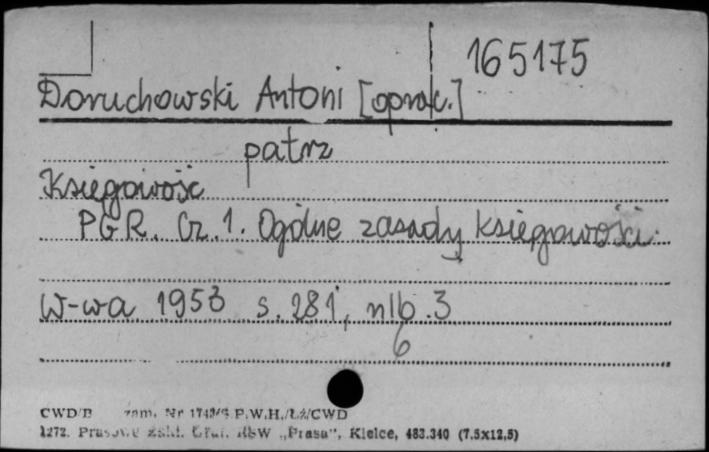 165175
Doruchowski Antoni [oprac.]
patrz
Księgowość
PGR. Cz. 1. Ogólne zasady księgowości.
W-wa 1953 s. 281, nlb. 3
6
CWD/B zam. Nr P.W.H./Łż/CWD
1272. Prasowe Zakł. Graf. RSW „Prasa", Kielce, 483.340 (7,5x12,5)